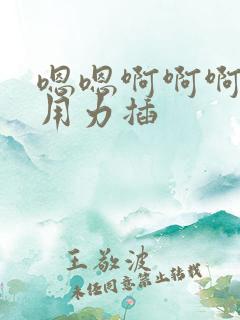 嗯嗯啊啊啊
用力插
王敬波
未经同意禁止转载